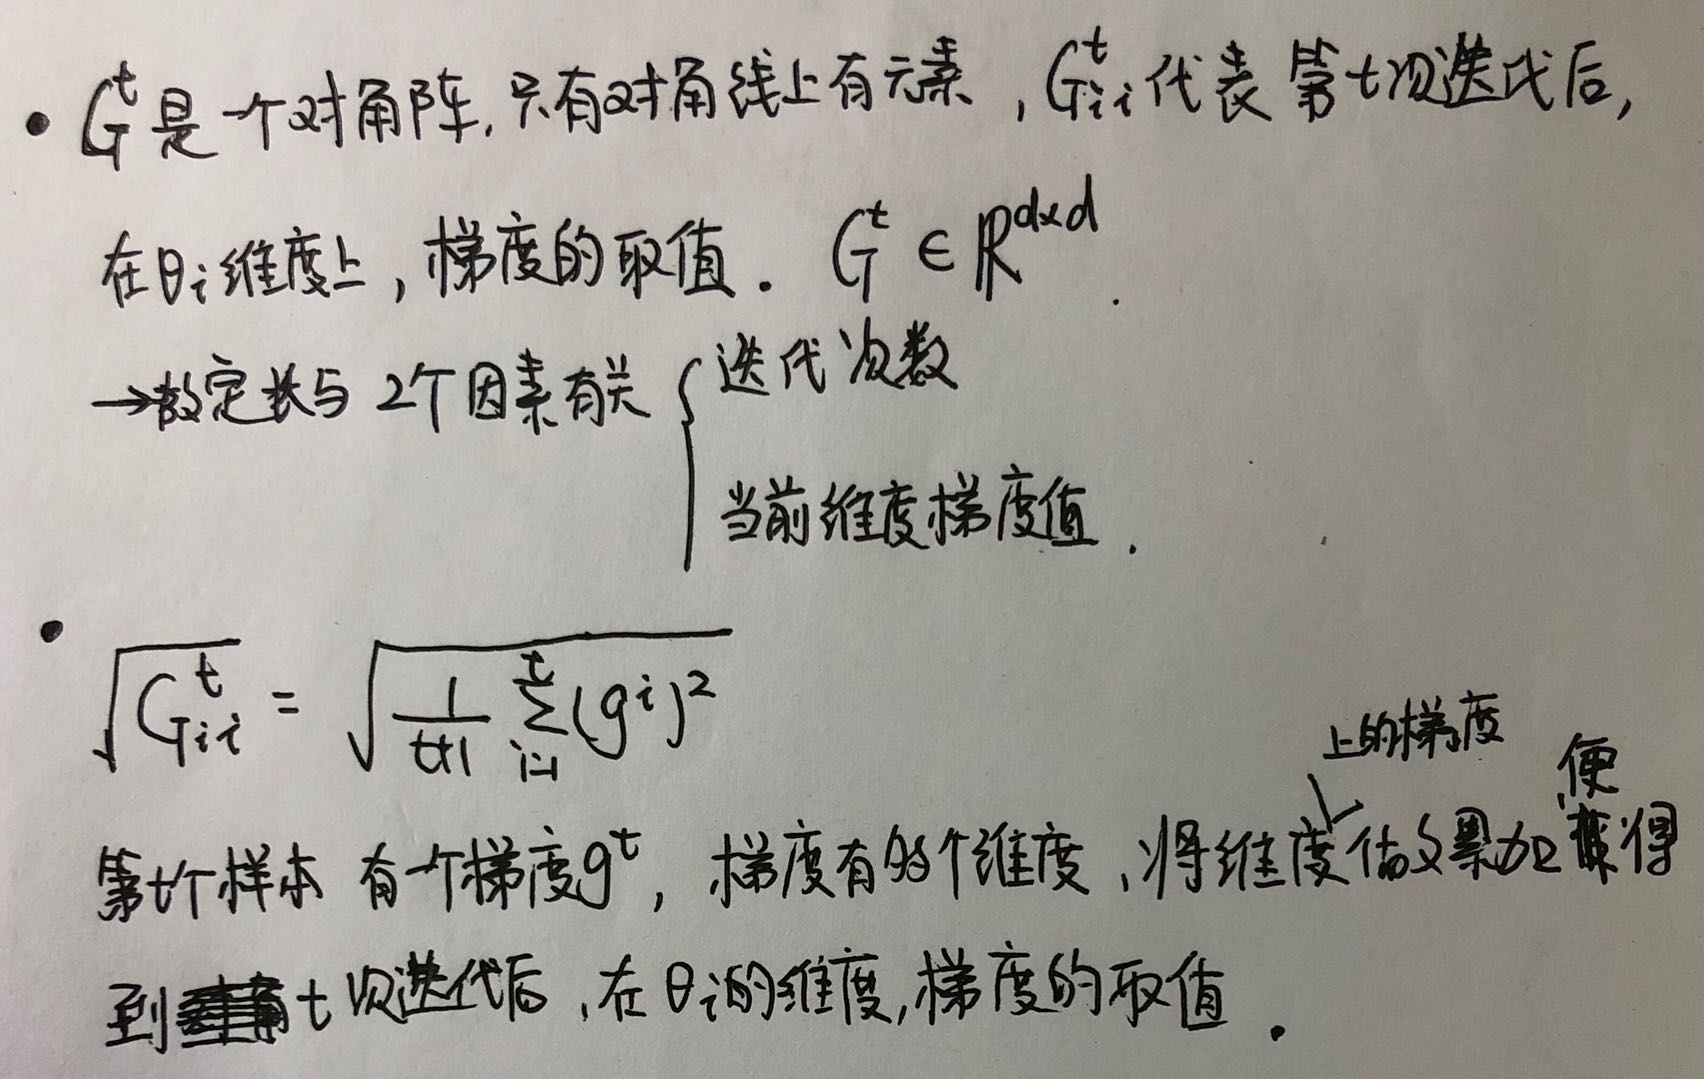 • G^t 是一个对角阵,只有对角线上有元素,G_ii^t 代表第t次迭代后,
在θ_i维度上,梯度的取值. G^t ∈ R^{d×d}.
→故定长与2个因素有关 { 迭代次数
当前维度梯度值.
• √(G_ii^t) = √(1/(t+1) Σ_{i=1}^t (g^i)^2)
上的梯度 便
第t个样本有一个梯度g^t, 梯度有 个维度,将维度做累加 得
到 t次迭代后,在θ_i的维度,梯度的取值.